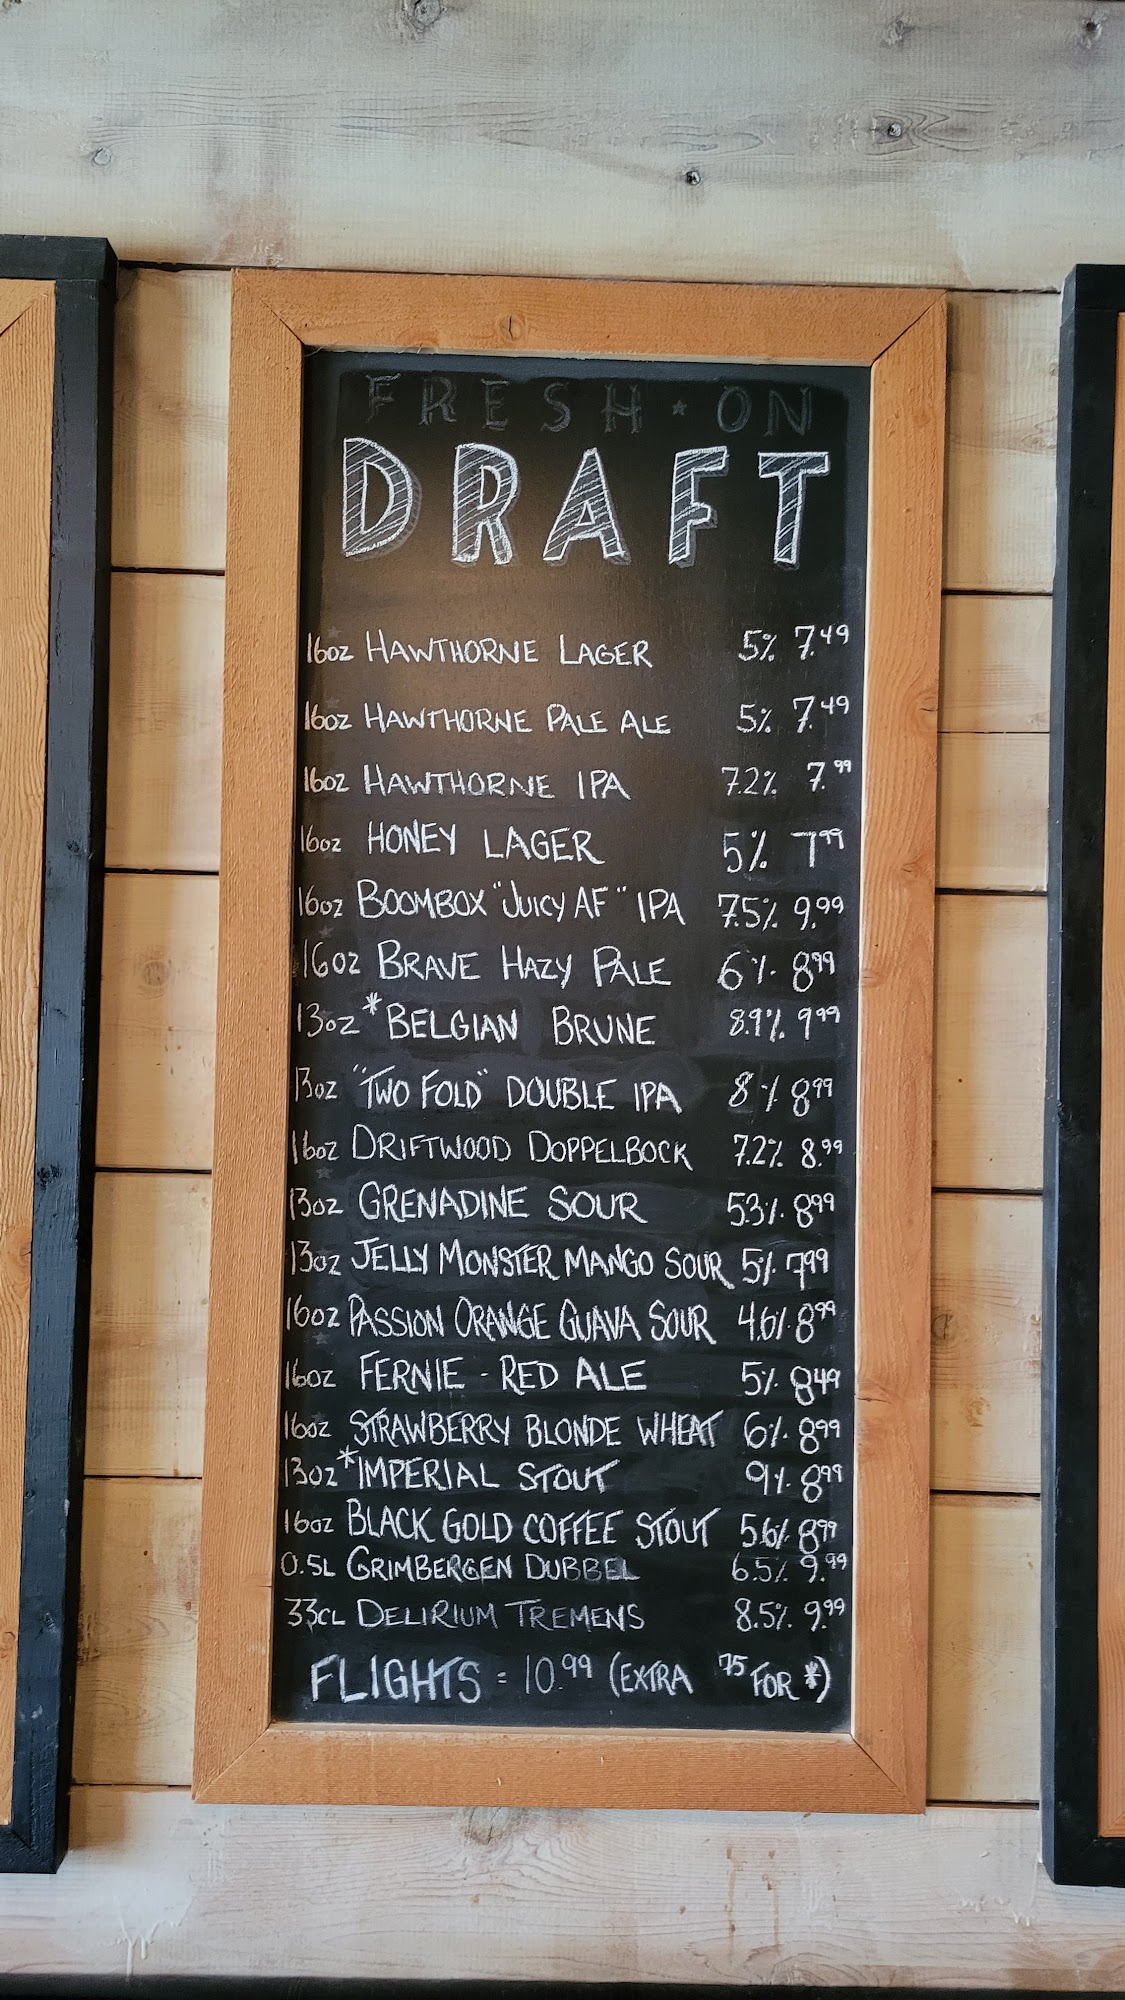 FRESH ★ ON
DRAFT
16oz HAWTHORNE LAGER 5% 7.49
16oz HAWTHORNE PALE ALE 5% 7.49
16oz HAWTHORNE IPA 7.2% 7.99
16oz HONEY LAGER 5% 7.99
16oz BOOMBOX "JUICY AF" IPA 7.5% 9.99
16oz BRAVE HAZY PALE 6% 8.99
13oz *BELGIAN BRUNE 8.9% 9.99
13oz "TWO FOLD" DOUBLE IPA 8% 8.99
16oz DRIFTWOOD DOPPELBOCK 7.2% 8.99
13oz GRENADINE SOUR 5.3% 8.99
13oz JELLY MONSTER MANGO SOUR 5% 7.99
16oz PASSION ORANGE GUAVA SOUR 4.6% 8.99
16oz FERNIE - RED ALE 5% 8.49
16oz STRAWBERRY BLONDE WHEAT 6% 8.99
13oz *IMPERIAL STOUT 9% 8.99
16oz BLACK GOLD COFFEE STOUT 5.6% 8.99
0.5L GRIMBERGEN DUBBEL 6.5% 9.99
33CL DELIRIUM TREMENS 8.5% 9.99
FLIGHTS = 10.99 (EXTRA 75 FOR *)